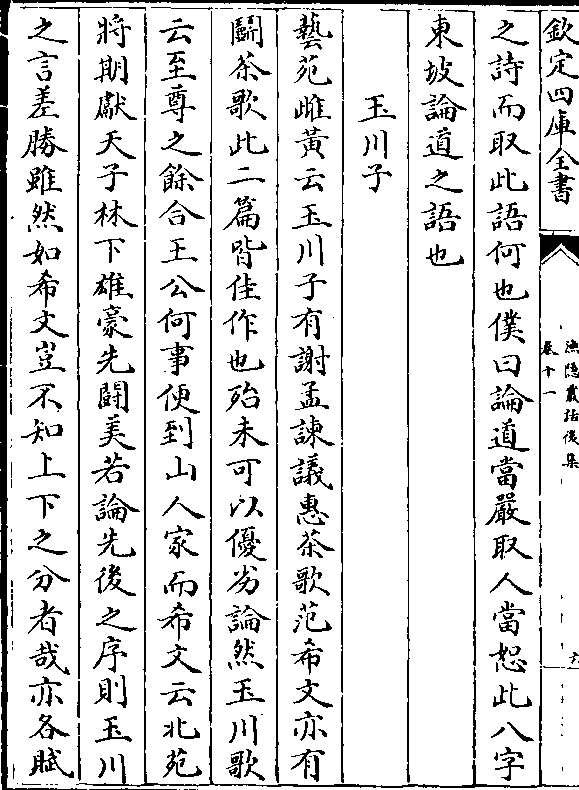 欽定四庫全書
漁隱叢話後集
卷十一
六
之詩而取此語何也僕曰論道當嚴取人當恕此八字
東坡論道之語也
玉川子
藝苑雌黃云玉川子有謝孟諫議惠茶歌范希文亦有
鬭茶歌此二篇皆佳作也殆未可以優劣論然玉川歌
云至尊之餘合王公何事便到山人家而希文云北苑
將期獻天子林下雄豪先鬭美若論先後之序則玉川
之言差勝雖然如希文豈不知上下之分者哉亦各賦